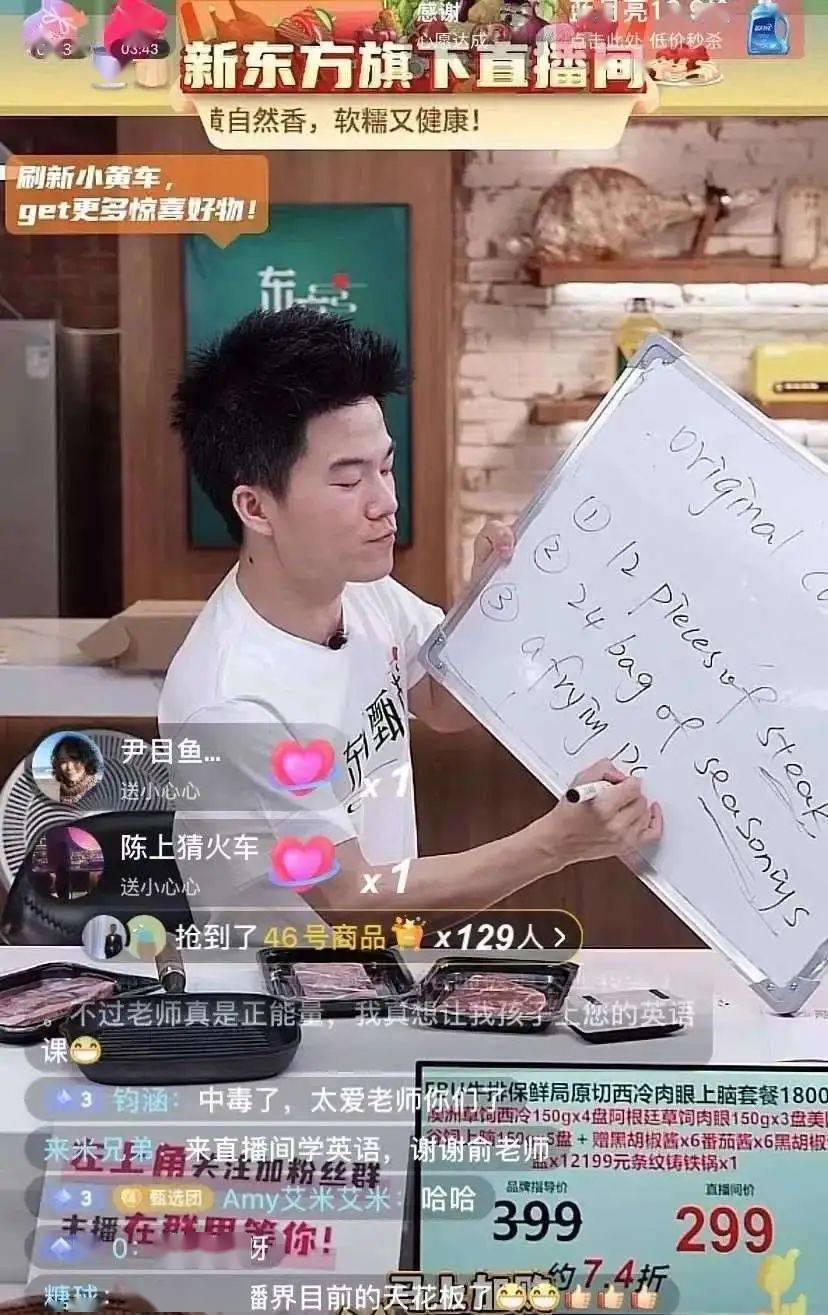 03:43
感谢
心愿达成
点击此处 低价秒杀
新东方旗下直播间
自然香，软糯又健康！
刷新小黄车，
get更多惊喜好物！
东
original
① 12 pieces of steak
② 24 bag of seasonings
③ a frying
东 甄
尹目鱼...
送小心心
x 1
陈上猜火车
送小心心
x 1
抢到了 46号商品 x129人 >
。不过老师真是正能量，我真想让我孩子上您的英语
课
3 钧涵：中毒了，太爱老师你们了
来米兄弟：来直播间学英语，谢谢俞老师
3 甄选团 Amy艾米艾米：哈哈
0： 牙
糖球： 番界目前的天花板了
左上角关注加粉丝群
主播在群里等你！
牛排保鲜局原切西冷肉眼上脑套餐1800
澳洲草饲西冷150gx4盘阿根廷草饲肉眼150gx3盘美
谷饲上脑150gx5盘 + 赠黑胡椒酱x6番茄酱x6黑胡椒
盘x12199元条纹铸铁锅x1
品牌指导价
直播间价
399
299
约7.4折